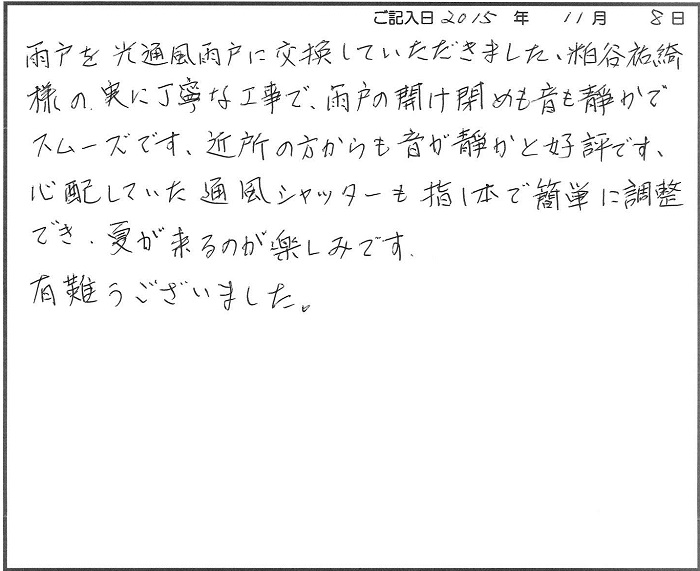 ご記入日 2015 年 11 月 8 日
雨戸を光通風雨戸に交換していただきました、粕谷祐綺
様の、実に丁寧な工事で、雨戸の開け閉めも音も静かで
スムーズです、近所の方からも音が静かと好評です、
心配していた通風シャッターも指1本で簡単に調整
でき、夏が来るのが楽しみです.
有難うございました。